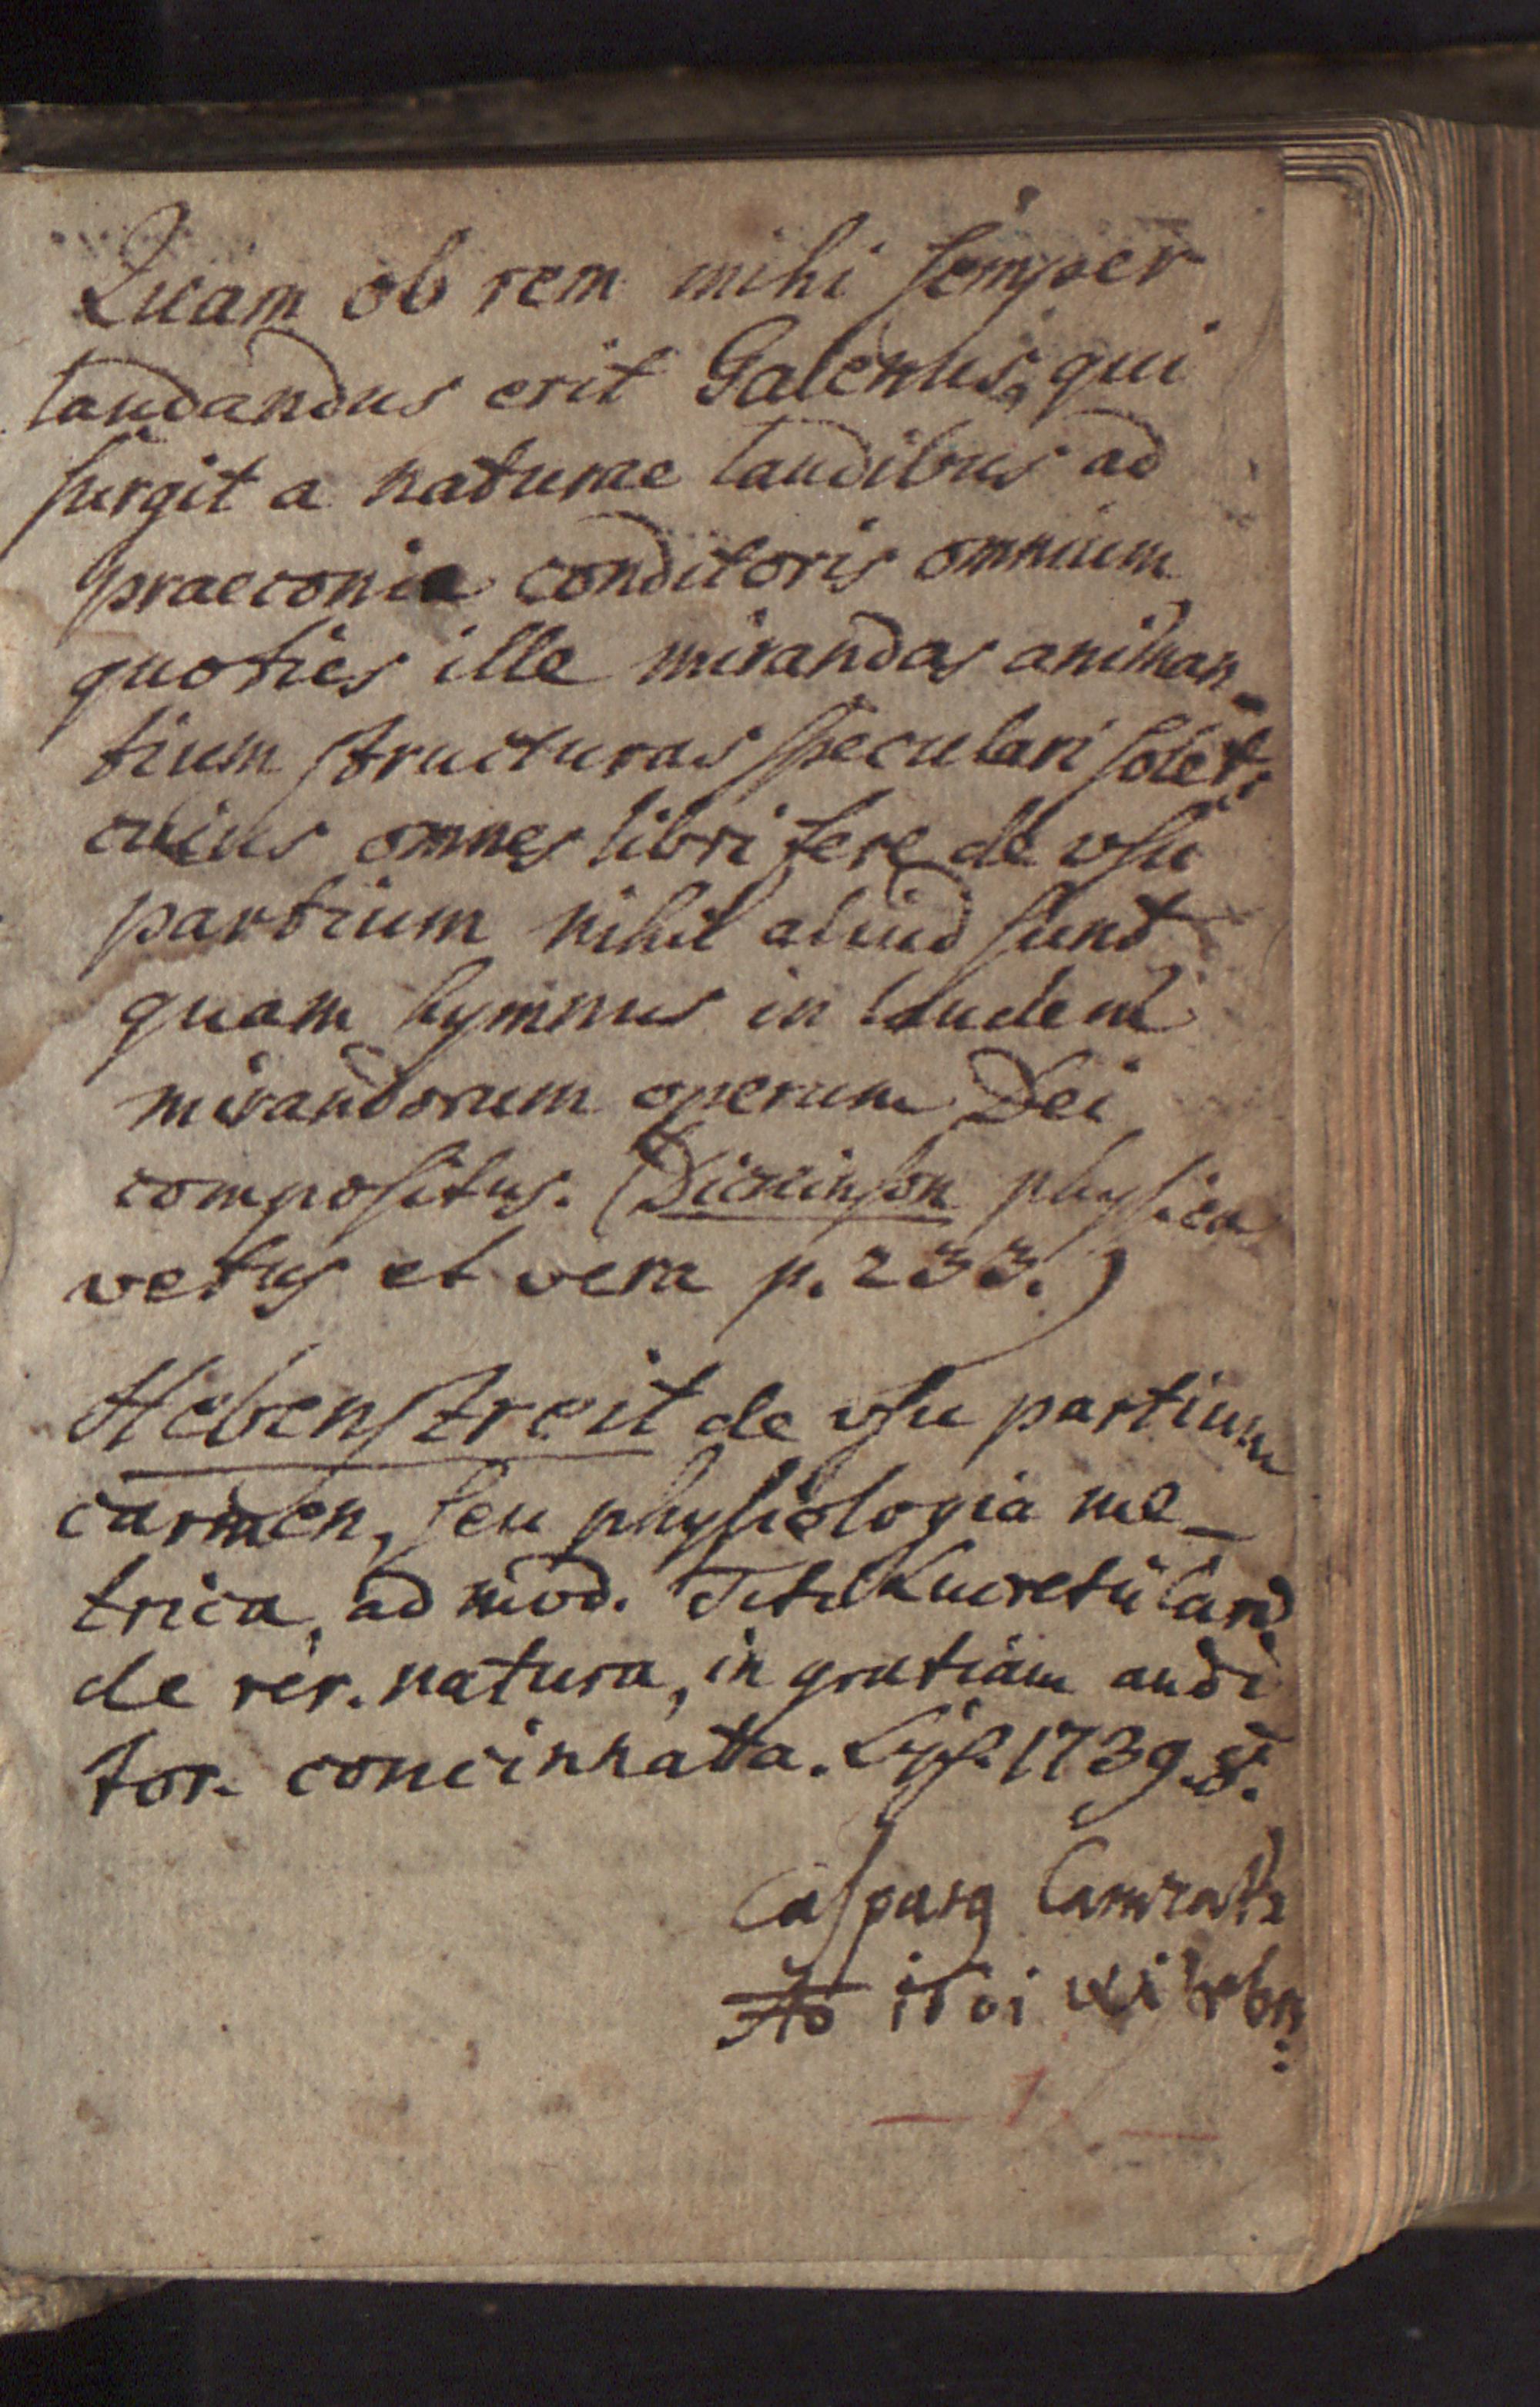 Quam ob rem mihi semper
laudandus erit Galenus, qui
surgit a naturae laudibus ad
praeconia conditoris omnium
quoties ille mirandas animan-
tium structuras speculari solet;
cuius omnes libri fere de vsu
partium nihil aliud sunt
quam hymnus in laudem
mirandorum operum Dei
compositus. (Dickinson physica
vetus et vera p. 233.)
Hebenstreit de vsu partium
carmen, seu physiologia me-
trica, ad mod. Titi Lucretii Cari
de rer. natura, in gratiam audi
tor. concinnata. Lips. 1739. 8.
Casparq
Ao
1.